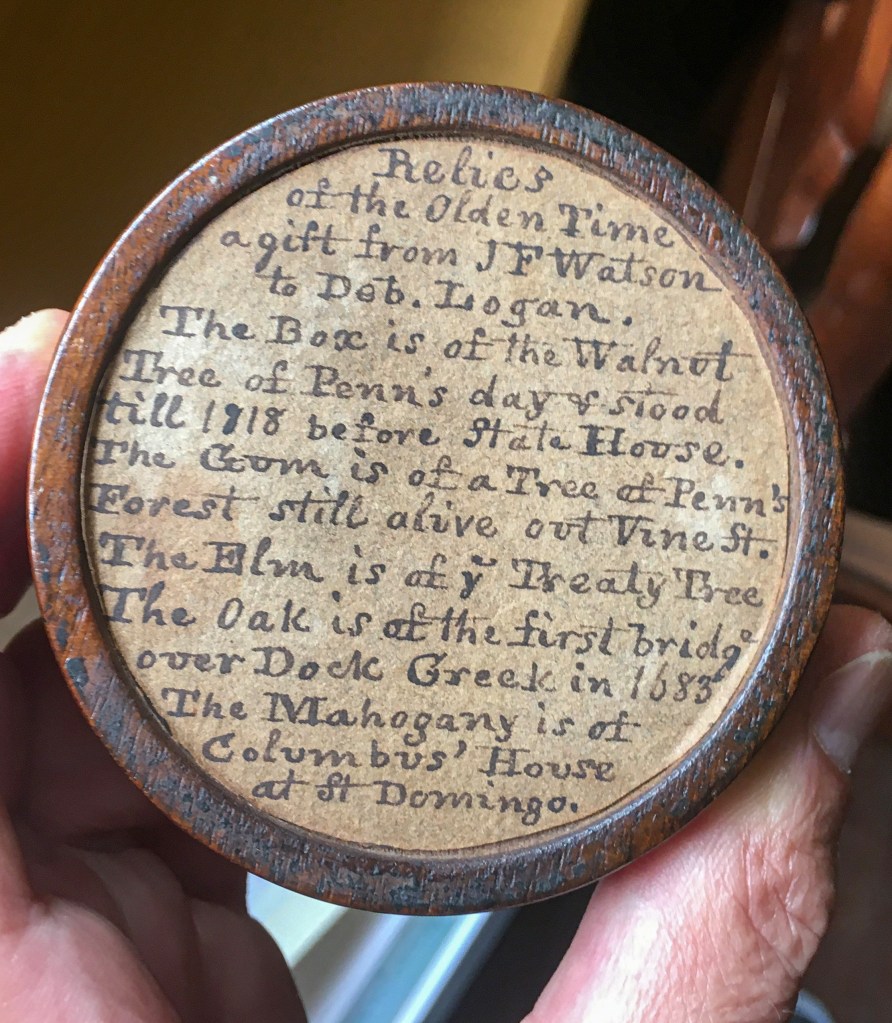 Relics
of the Olden Time
a gift from J F Watson
to Deb. Logan.
The Box is of the Walnut
Tree of Penn's day & stood
till 1818 before State House.
The Gum is of a Tree of Penn's
Forest still alive out Vine St.
The Elm is of yͤ Treaty Tree
The Oak is of the first bridge
over Dock Creek in 1683
The Mahogany is of
Columbus' House
at St Domingo.